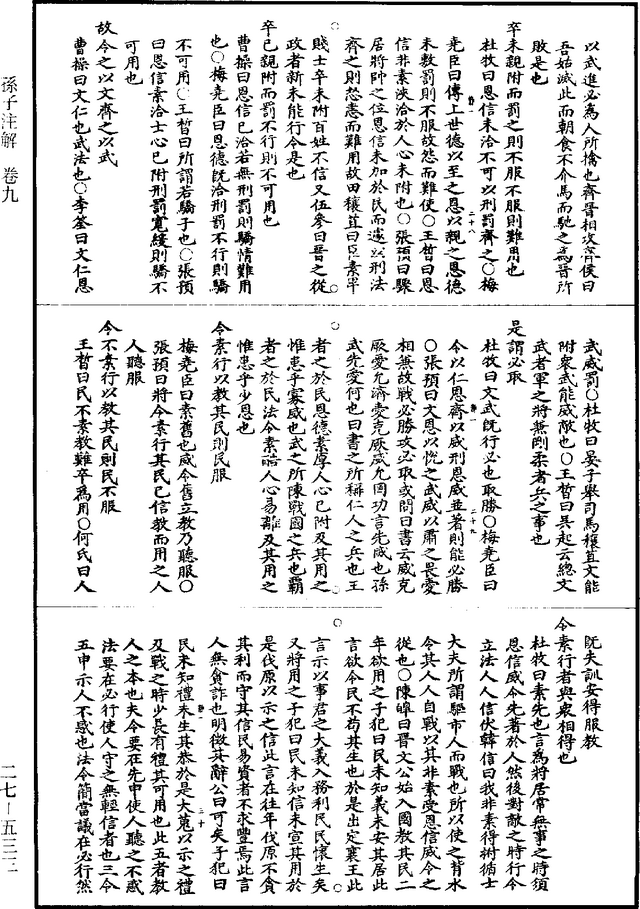 以武進必為人所擒也齊晉相攻齊侯曰
吾姑滅此而朝食不介馬而馳之為晉所
敗是也
卒未親附而罰之則不服不服則難用也
杜牧曰恩信未洽不可以刑罰齊之○梅
堯臣曰傅上世德以至之恩以親之恩德
未敷罰則不服故怨而難使○王晳曰恩
信非素浹洽於人心未附也○張預曰驟
居將帥之位恩信未加於民而遽以刑法
齊之則怒恚而難用故田穰苴曰臣素卑
賤士卒未附百姓不信又伍參曰晉之從
政者新未能行令是也
卒已親附而罰不行則不可用也
曹操曰恩信已洽若無刑罰則驕惰難用
也○梅堯臣曰恩德既洽刑罰不行則驕
不可用○王晳曰所謂若驕子也○張預
曰恩信素洽士心已附刑罰寬緩則驕不
可用也
故令之以文齊之以武
曹操曰文仁也武法也○李筌曰文仁恩
武威罰○杜牧曰晏子舉司馬穰苴文能
附衆武能威敵也○王晳曰吳起云總文
武者軍之將兼剛柔者兵之事也
是謂必取
杜牧曰文武既行必也取勝○梅堯臣曰
令以仁恩齊以威刑恩威並著則能必勝
○張預曰文恩以悅之武威以肅之畏愛
相兼故戰必勝攻必取或問曰書云威克
厥愛允濟愛克厥威允罔功言先威也孫
武先愛何也曰書之所稱仁人之兵也王
者之於民恩德素厚人心已附及其用之
惟患乎寡威也武之所陳戰國之兵也霸
者之於民法令素酷人心易離及其用之
惟患乎少恩也
令素行以教其民則民服
梅堯臣曰素舊也威令舊立教乃聽服○
張預曰將令素行其民已信教而用之人
人聽服
令不素行以教其民則民不服
王晳曰民不素教難卒為用○何氏曰人
既失訓安得服教
令素行者與衆相得也
杜牧曰素先也言為將居常無事之時須
恩信威令先著於人然後對敵之時行令
立法人人信伏韓信曰我非素得拊循士
大夫所謂驅市人而戰也所以使之背水
令其人人自戰以其非素受恩信威令之
從也○陳皥曰晉文公始入國教其民二
年欲用之子犯曰民未知義未安其居此
言欲令民不苟其生也於是出定襄王此
言示以事君之大義入務利民民懷生矣
又將用之子犯曰民未知信未宣其用於
是伐原以示之信此言在往年伐原不貪
其利而守其信民易資者不求豐焉此言
人無貪詐也明徵其辭公曰可矣子犯曰
民未知禮未生其恭於是大蒐以示之禮
及戰之時少長有禮其可用也此五者教
人之本也夫令要在先申使人聽之不惑
法要在必行使人守之無輕信者也三令
五申示人不惑也法令簡當議在必行然
孫子注解　卷九
二七—五三二